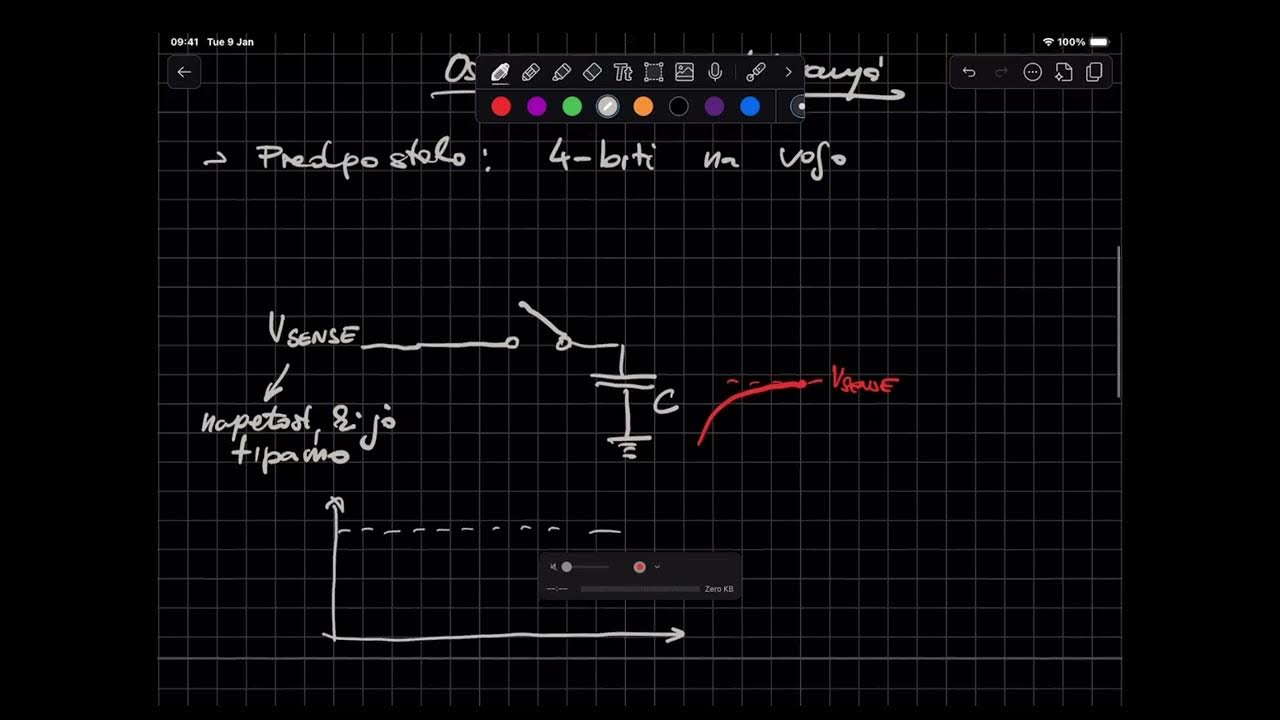 09:41 Tue 9 Jan
100%
Tt
→ Predpostavko: 4-biti na voljo
VSENSE
napetost, ki jo
tipamo
C
VSENSE
--:--
Zero KB